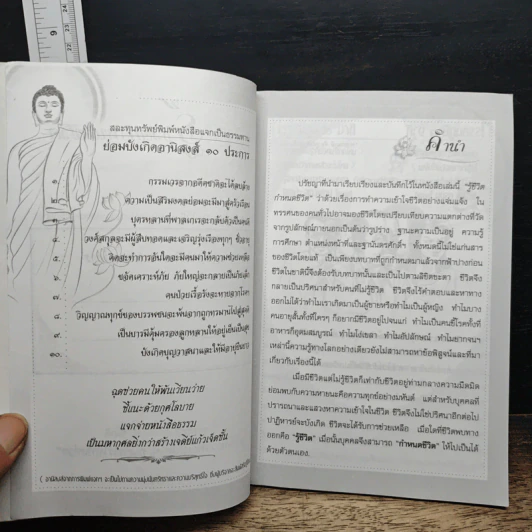 สละทุนทรัพย์พิมพ์หนังสือแจกเป็นธรรมทาน
ย่อมบังเกิดอานิสงส์ ๑๐ ประการ
กรรมเวรจากอดีตชาติจะได้
ความเป็นสิริมงคลย่อมจะมีมาสู่ครัวเรือน
บุตรหลานที่พาลเกเรจะกลับตัวเป็นคนดี
วงศ์สกุลจะมีผู้สืบทอดและเจริญรุ่งเรือง
คิดจะทำการอันใดจะมีคนมาให้ความช่วยเหลือ
ขจัดเคราะห์ภัย ภัยใหญ่จะกลายเป็นภัยเล็ก
คนป่วยเรื้อรังจะหายจากโรค
วิญญาณทุกข์ของบรรพชนจะพ้นจากถูกทรมานไปสู่สุคติ
เป็นบารมีคุ้มครองลูกหลานให้อยู่เย็นเป็นสุข
๙.
๑๐.
บังเกิดบุญวาสนาและให้มีอายุยืนยาว
ฉุดช่วยคนให้พ้นเวียนว่าย
ชี้แนะด้วยกุศโลบาย
แจกจ่ายหนังสือธรรม
เป็นมหากุศลยิ่งกว่าสร้างเจดีย์แก้วเจ็ดชั้น
คำนำ
ปรัชญาที่นำมาเรียบเรียงและบันทึกไว้ในหนังสือเล่มนี้ "รู้ชีวิต
กำหนดชีวิต" ว่าด้วยเรื่องการทำความเข้าใจชีวิตอย่างแจ่มแจ้ง ใน
ทรรศนะของคนทั่วไปอาจมองชีวิตโดยเปรียบเทียบความแตกต่างที่วัด
จากรูปลักษณ์ภายนอกเป็นต้นว่ารูปร่าง ฐานะความเป็นอยู่ ความรู้
การศึกษา ตำแหน่งหน้าที่และฐานันดรศักดิ์ฯ ทั้งหมดนี้ไม่ใช่แก่นสาร
ของชีวิตโดยแท้ เป็นเพียงบทบาทที่ถูกกำหนดมาแล้วจากฟ้าปางก่อน
ชีวิตในชาตินี้จึงต้องรับบทบาทนั้นและเป็นไปตามลิขิตชะตา ชีวิตจึง
กลายเป็นปริศนาสำหรับคนที่ไม่รู้ชีวิต ชีวิตจึงไร้คำตอบและหาทาง
ออกไม่ได้ว่าทำไมเราเกิดมาเป็นผู้ชายหรือทำไมเป็นผู้หญิง ทำไมบาง
คนอายุสั้นทั้งที่ใครๆ ก็อยากมีชีวิตอยู่ไปจนแก่ ทำไมเป็นคนขี้โรคทั้งที่
อาหารก็อุดมสมบูรณ์ ทำไมโง่เขลา ทำไมอัปลักษณ์ ทำไมยากจนฯ
เหล่านี้ความรู้ทางโลกอย่างเดียวยังไม่สามารถหาข้อพิสูจน์และที่มา
เกี่ยวกับเรื่องนี้ได้
เมื่อมีชีวิตแต่ไม่รู้ชีวิตก็เท่ากับชีวิตอยู่ท่ามกลางความมืดมิด
ย่อมพบกับความหายนะคือความทุกข์อย่างแน่แท้ แต่สำหรับบุคคลที่
ปรารถนาและแสวงหาความเข้าใจในชีวิต ชีวิตจึงไม่ใช่ปริศนาอีกต่อไป
ปาฏิหารย์จะบังเกิด ชีวิตจะได้รับการช่วยเหลือ เมื่อใดที่ชีวิตพบทาง
ออกคือ "รู้ชีวิต" เมื่อนั้นบุคคลจึงสามารถ "กำหนดชีวิต" ให้ไปเป็นได้
ด้วยตัวตนเอง